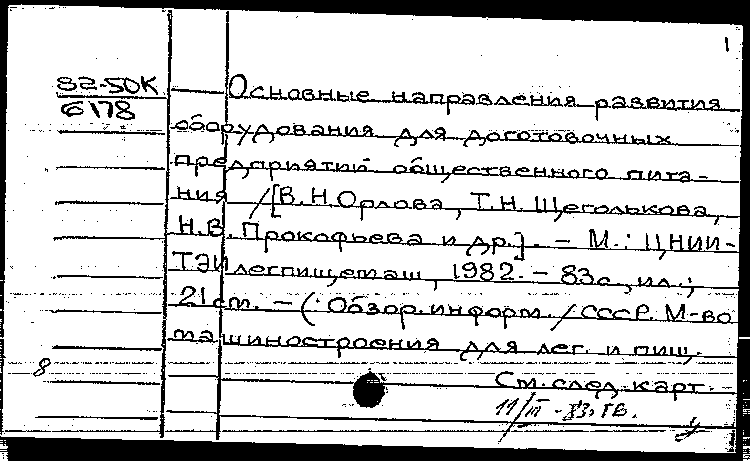 1
82-50К
6178
Основные направления развития
оборудования для доготовочных
предприятий общественного пита-
ния /[В.Н.Орлова, Т.Н. Щеголькова,
Н.В. Прокофьева и др.]. - М.: ЦНИИ-
ТЭИлегпищемаш, 1982. - 83с., ил.;
21см. - (Обзор. информ. / СССР. М-во
машиностроения для лег. и пищ.
8
См. след. карт.
11/III-83.